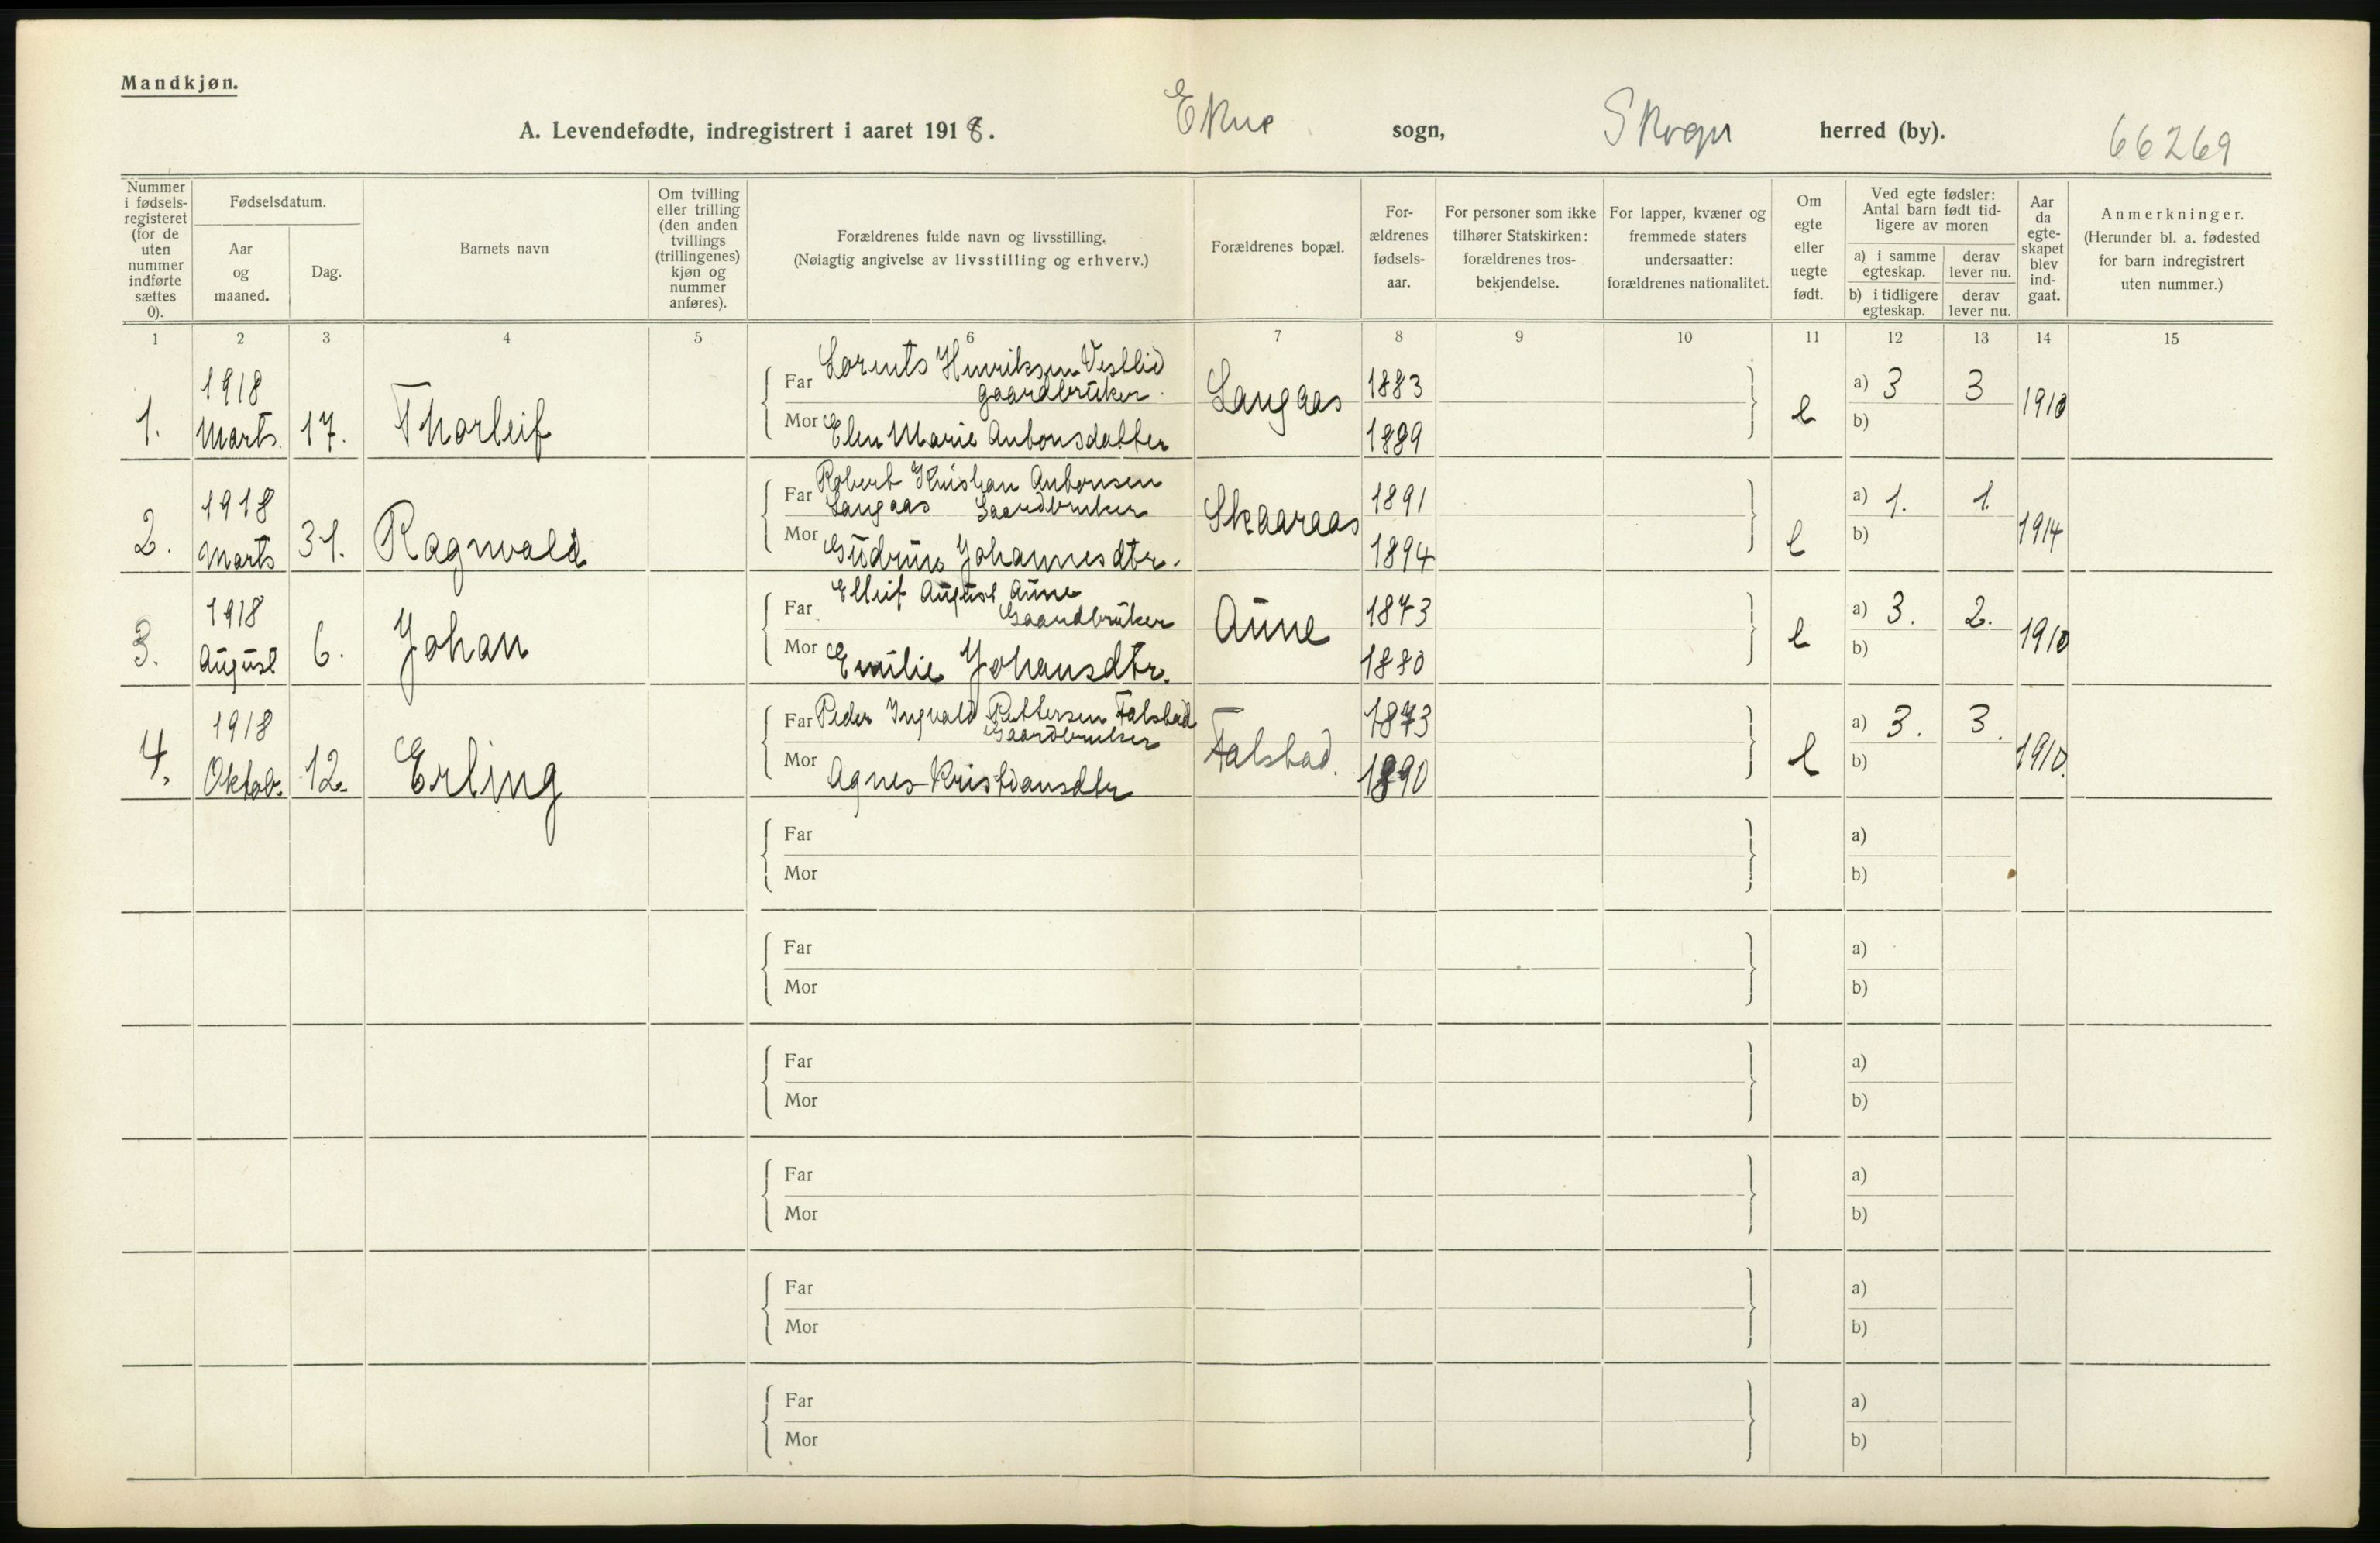 Mandkjøn.
A. Levendefødte, indregistrert i aaret 1918. Ekne sogn, Skogn herred (by). 66269
Nummer i fødsels-registeret (for de uten nummer indførte sættes 0).
Fødselsdatum.
Aar og maaned.
Dag.
Barnets navn
Om tvilling eller trilling (den anden tvillings (trillingenes) kjøn og nummer anføres).
Forældrenes fulde navn og livsstilling.
(Nøiagtig angivelse av livsstilling og erhverv.)
Forældrenes bopæl.
For-ældrenes fødsels-aar.
For personer som ikke tilhører Statskirken: forældrenes tros-bekjendelse.
For lapper, kvæner og fremmede staters undersaatter: forældrenes nationalitet.
Om egte eller uegte født.
Ved egte fødsler: Antal barn født tid-ligere av moren
a) i samme egteskap.
derav lever nu.
b) i tidligere egteskap.
derav lever nu.
Aar da egte-skapet blev ind-gaat.
Anmerkninger.
(Herunder bl. a. fødested for barn indregistrert uten nummer.)
1 2 3 4 5 6 7 8 9 10 11 12 13 14 15
1. 1918 Marts. 17. Thorleif
Far Lorents Henriksen Vestlid
gaardbruker.
Mor Elen Marie Antonsdatter
Langaas 1883 1889 e a) 3 3 b) 1910
2. 1918 Marts 31. Ragnvald
Far Robert Kristian Antonsen
Langaas Gaardbruker
Mor Gudrun Johannesdtr.
Skaaraas 1891 1894 e a) 1. 1 b) 1914
3. 1918 August 6. Johan
Far Elleif August Aune
Gaardbruker
Mor Emilie Johansdtr.
Aune 1873 1880 e a) 3. 2. b) 1910
4. 1918 Oktob. 12. Erling
Far Peder Ingvald Pettersen Falstad
Gaardbruker
Mor Agnes Kristiansdtr
Falstad. 1873 1890 e a) 3. 3. b) 1910.
Far a)
Mor b)
Far a)
Mor b)
Far a)
Mor b)
Far a)
Mor b)
Far a)
Mor b)
Far a)
Mor b)